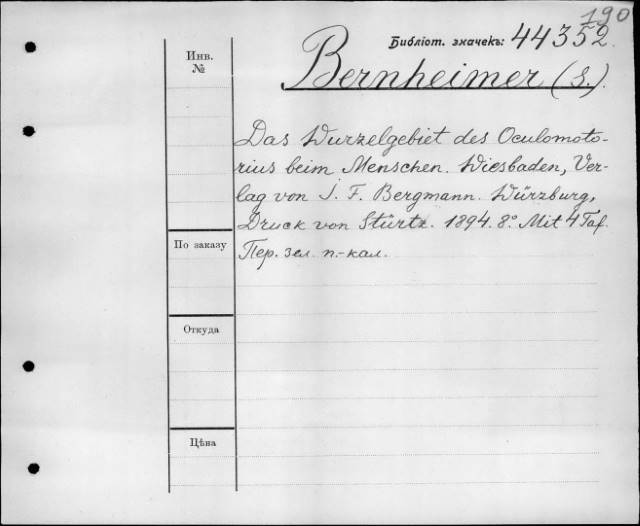 190
Библіот. значекъ: 44352.
Инв. №
Bernheimer (S.).
Das Wurzelgebiet des Oculomoto-
rius beim Menschen. Wiesbaden, Ver-
lag von J. F. Bergmann. Würzburg,
Druck von Stürtz. 1894. 8° Mit 4 Taf.
По заказу
Пер. зел. п.-кал.
Откуда
Цѣна